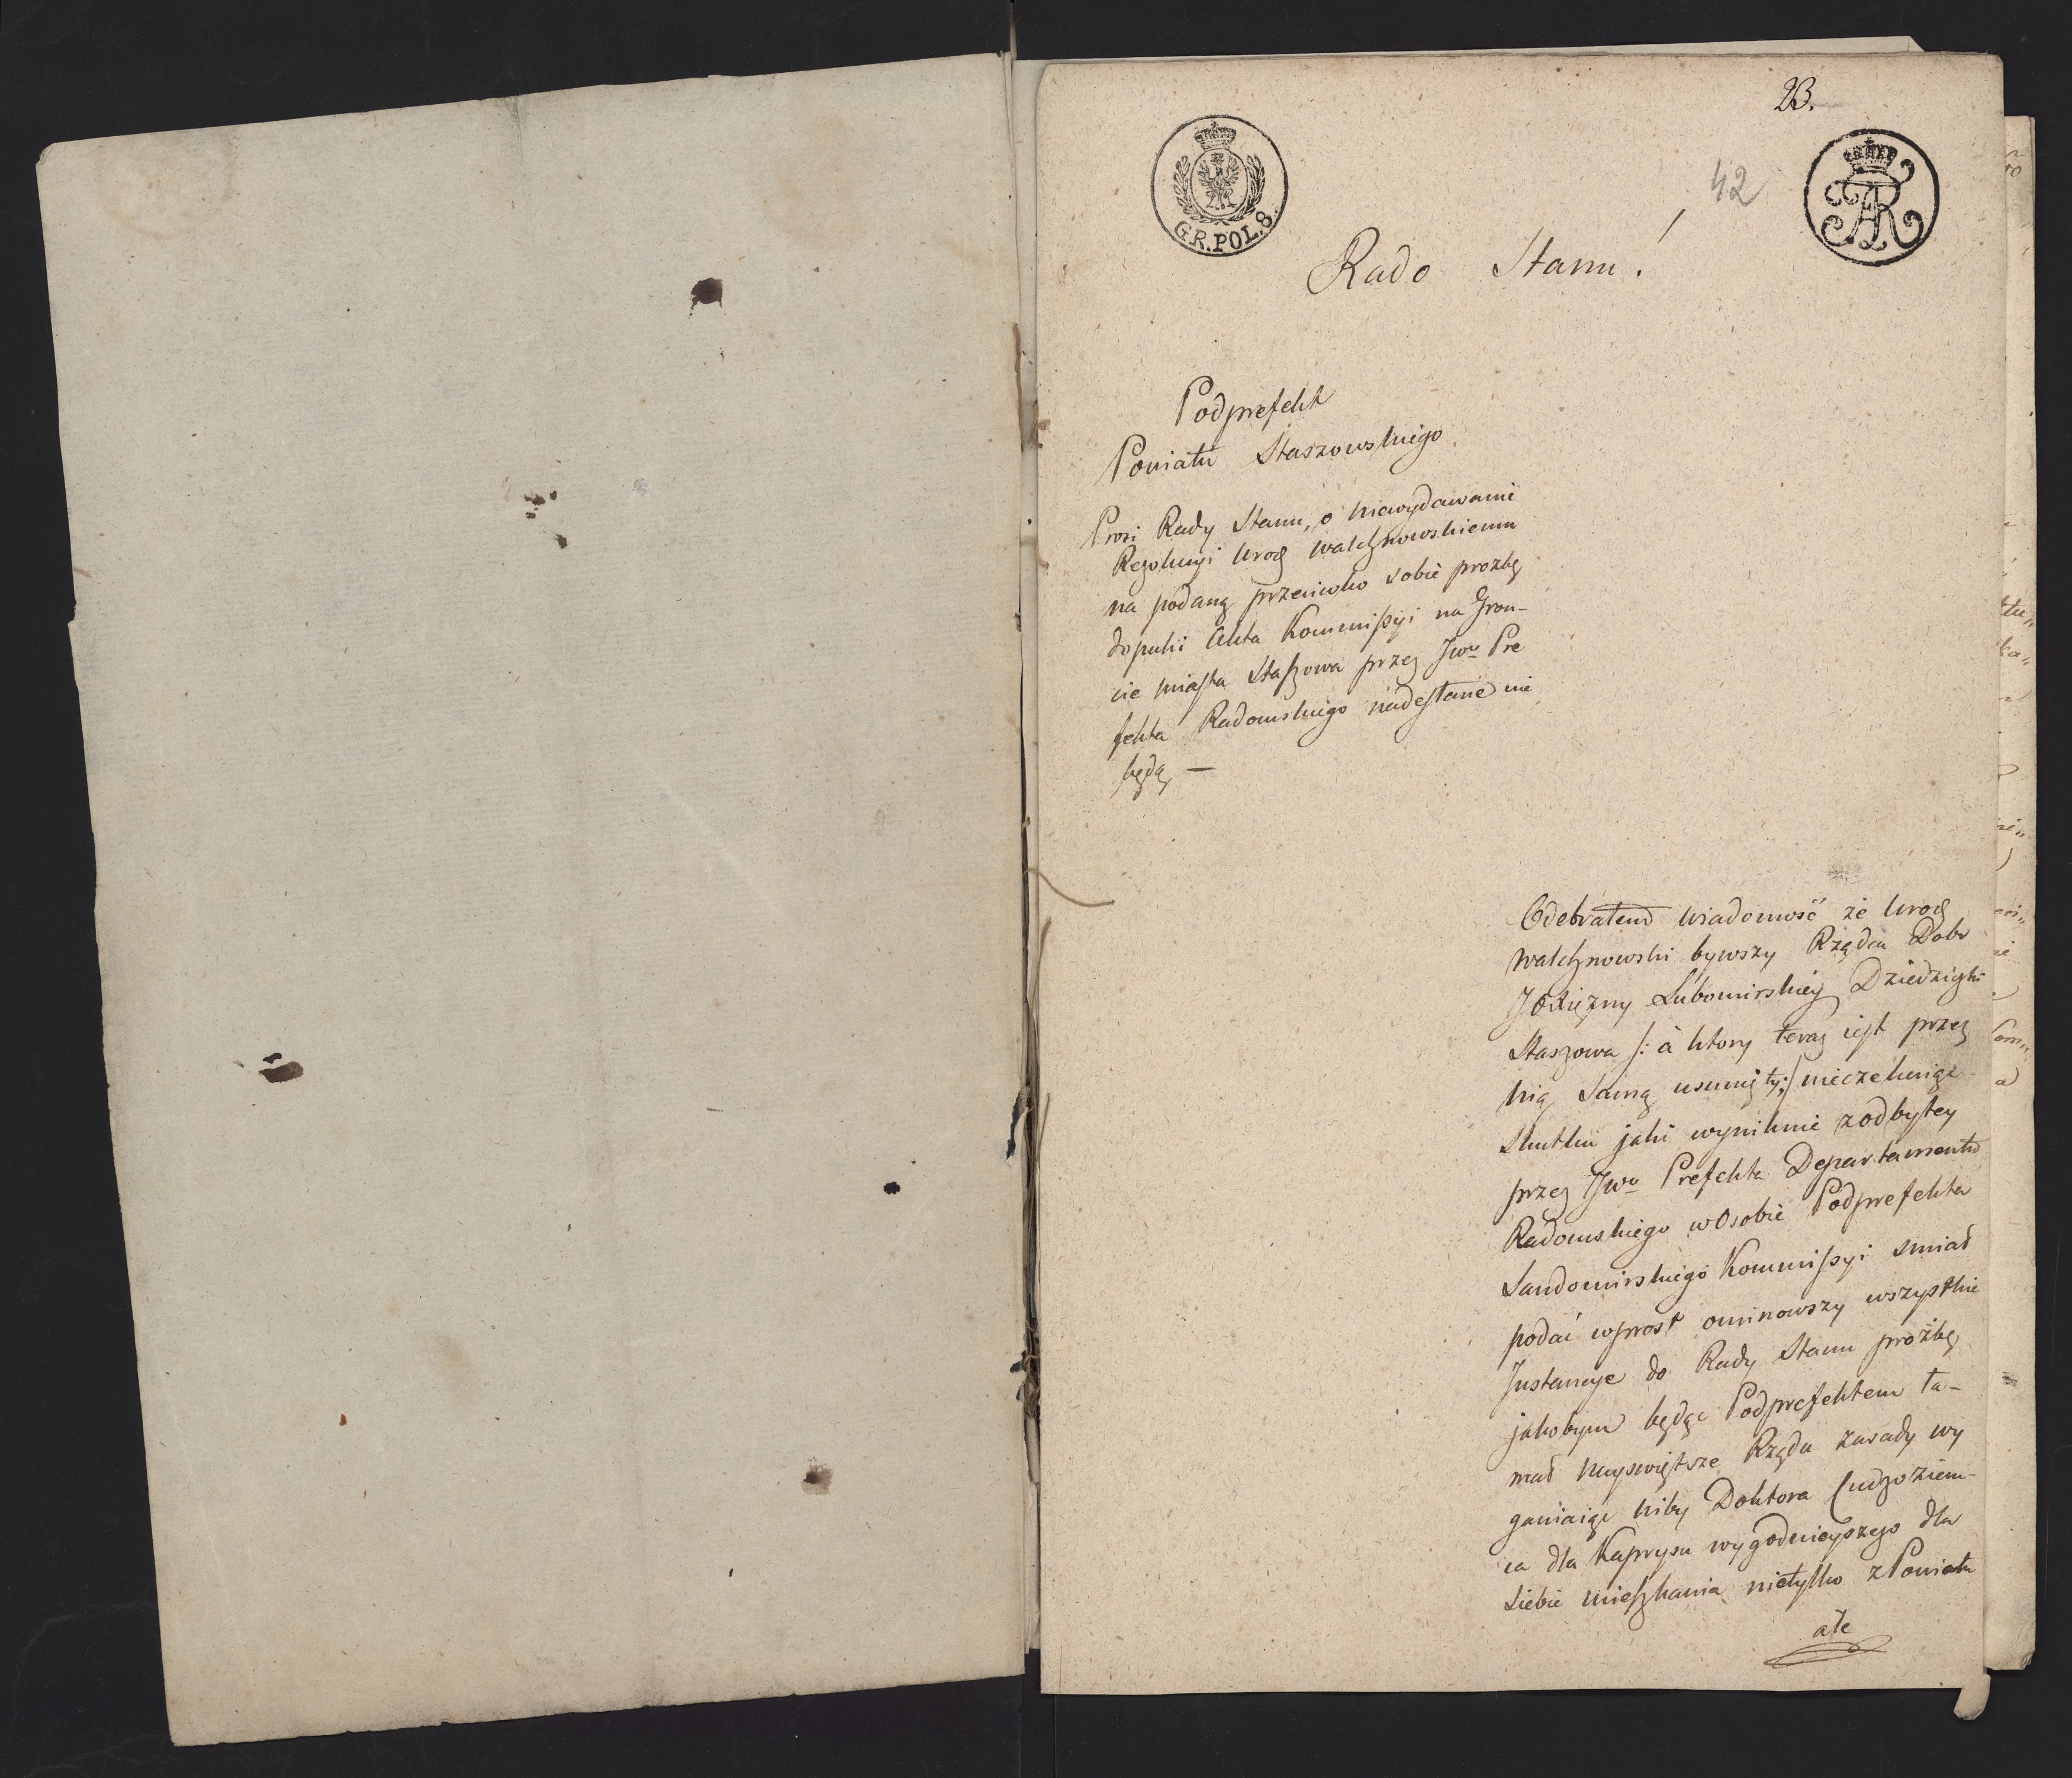 23.
42
GR.POL.8.
FAR
Rado Stanu!
Podprefekt
Powiatu Staszowskiego
Prosi Rady Stanu, o niewydawanie
Rezolucyi Urog Walchnowskiemu
na podaną przeciwko sobie prozbę
dopuki Akta Kommissyi na Grun-
cie Miasta Staszowa przez JWo Pre
fekta Radomskiego nadesłane nie
będą —
Odebrałem Wiadomość że Urog
Walchnowski bywszy Rządca Dobr
JOXiężny Lubomirskiey Dziedziczki
Staszowa /: a ktory teraz iest przez
Nią Samą usunięty :/ nieczekaiąc
Skutku jaki wyniknie z odbytey
przez JWo Prefekta Departamentu
Radomskiego w Osobie Podprefekta
Sandomirskiego Kommissyi smiał
podać wprost ominowszy wszystkie
Instancye do Rady Stanu prozbę
jakobym będąc Podprefektem ła-
mał Nayswiętsze Rządu zasady wy
ganiaiąc niby Doktora Cudzoziem-
ca dla Kaprysu wygodnieyszego dla
Siebie Mieszkania nietylko z Powiatu
ale